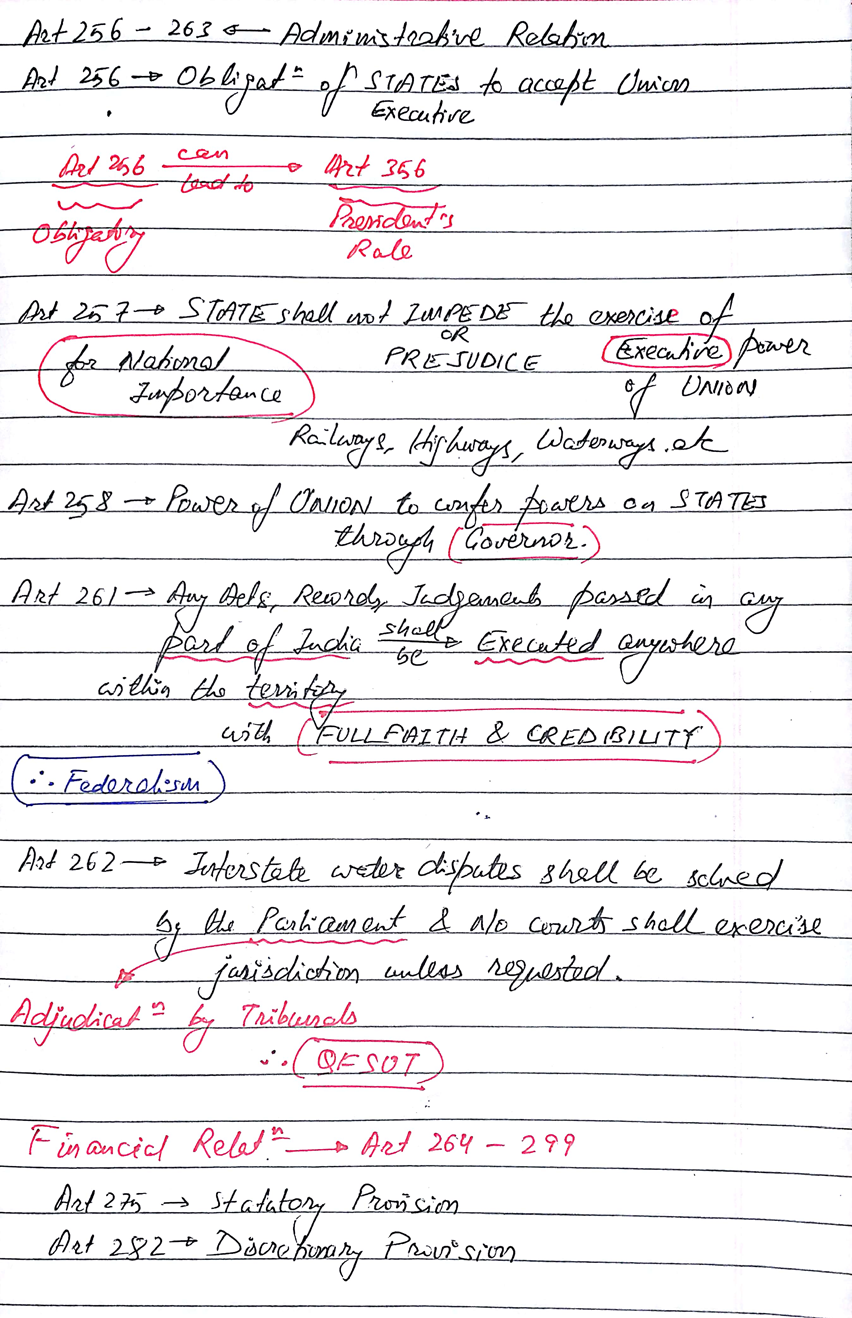 Art 256 - 263 ← Administrative Relation
Art 256 → Obligatⁿ of STATES to accept Union
Executive
Art 256 can lead to → Art 356
Obligatory President's
Rule
Art 257 → STATE shall not IMPEDE the exercise of
OR
for National PREJUDICE Executive power
Importance of UNION
Railways, Highways, Waterways. etc
Art 258 → Power of UNION to confer powers on STATES
through Governor.
Art 261 → Any Acts, Records, Judgements passed in any
part of India shall be → Executed anywhere
within the territory
with FULL FAITH & CREDIBILITY
∴ Federalism
Art 262 → Interstate water disputes shall be solved
by the Parliament & n/o courts shall exercise
jurisdiction unless requested.
Adjudicatⁿ by Tribunals
∴ QFSOT
Financial Relatⁿ → Art 264 - 299
Art 275 → Statutory Provision
Art 282 → Discretionary Provision